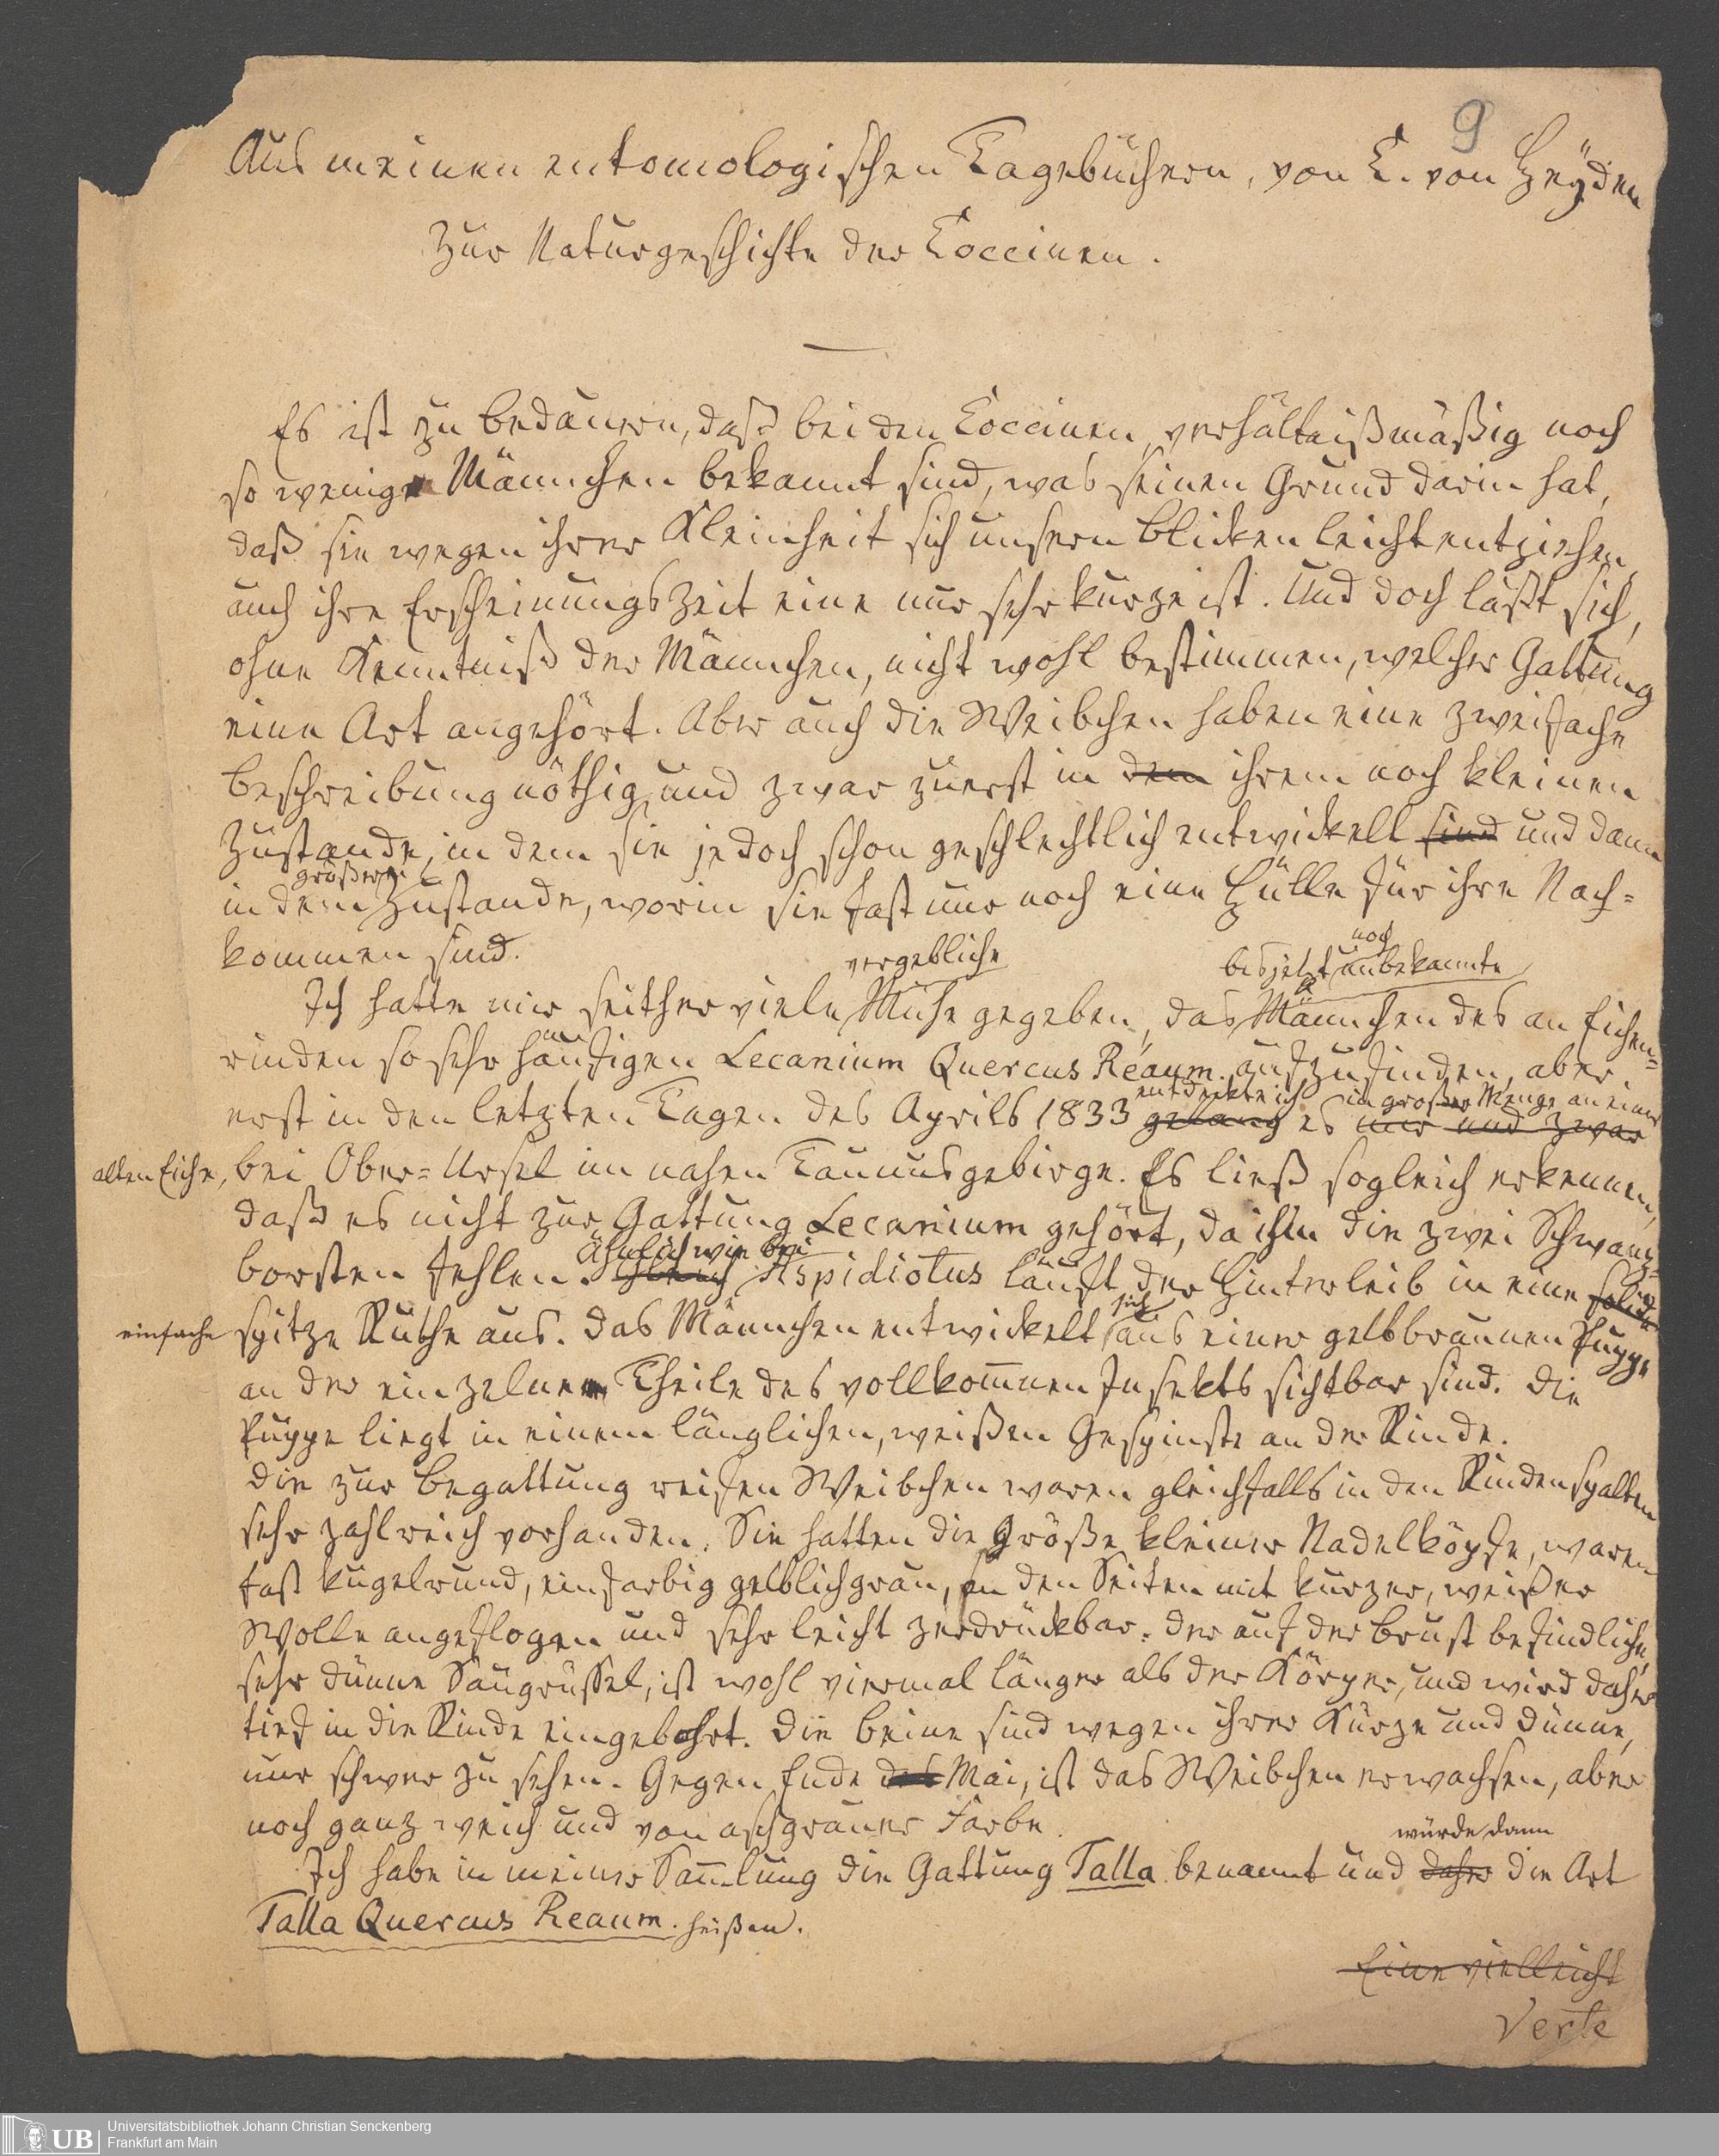 9
Aus meinen entomologischen Tagebüchern, von C. von Heÿden
Zur Naturgeschichte der Coccinen.
Es ist zu bedauern, daß bei den Coccinen verhältnißmäßig noch
so wenige Männchen bekannt sind, was seinen Grund darin hat,
daß sie wegen ihrer Kleinheit sich unsern Blicken leicht entziehen,
auch ihre Erscheinungszeit eine nur sehr kurze ist. Und doch läßt sich,
ohne Kenntniß der Männchen, nicht wohl bestimmen, welcher Gattung
eine Art angehört. Aber auch die Weibchen haben eine zweifache
Beschreibung nöthig, und zwar zuerst in dem ihrem noch kleinen
Zustande, in dem sie jedoch schon geschlechtlich entwickelt sind und dann
größern
in dem Zustande, worin sie fast nur noch eine Hülle für ihre Nach-
kommen sind.
vergebliche bis jetzt noch unbekannte
Ich hatte mir seither viele Mühe gegeben, das Männchen des an Eichen-
rinden so sehr häufigen Lecanium Quercus Réaum. aufzufinden, aber
entdeckte ich in großer Menge an einer
erst in den letzten Tagen des Aprils 1833 gelang es mir und zwar
alten Eiche, bei Ober-Ursel im nahen Taunusgebirge. Es ließ sogleich erkennen,
daß es nicht zur Gattung Lecanium gehört, da ihm die zwei Schwanz-
Ähnlich wie bei
borsten fehlen. Aspidiotus läuft der Hinterleib in eine
sich
einfache spitze Ruthe aus. Das Männchen entwickelt aus einer gelbbraunen Puppe
an der einzelne Theile des vollkom̄nen Insekts sichtbar sind. Die
Puppe liegt in einem länglichen, weißen Gespinste an der Rinde.
Die zur Begattung reifen Weibchen waren gleichfalls in den Rindenspalten
sehr zahlreich vorhanden. Sie hatten die Größe kleiner Nadelköpfe, waren
fast kugelrund, einfarbig gelblichgrau, an den Seiten mit kurzer, weißer
Wolle angeflogen und sehr leicht zerdrückbar. Der auf der Brust befindliche,
sehr dünne Saugrüssel, ist wohl viermal länger als der Körper, und wird daher
tief in die Rinde eingebohrt. Die Beine sind wegen ihrer Kürze und Dünne,
nur schwer zu sehen. Gegen Ende des Mai, ist das Weibchen erwachsen, aber
noch ganz weich und von aschgrauer Farbe.
würde dann
Ich habe in meiner Sam̄lung die Gattung Talla benannt und daher die Art
Talla Quercus Reaum. heißen.
Eine vielleicht
Verte
UB Universitätsbibliothek Johann Christian Senckenberg
Frankfurt am Main